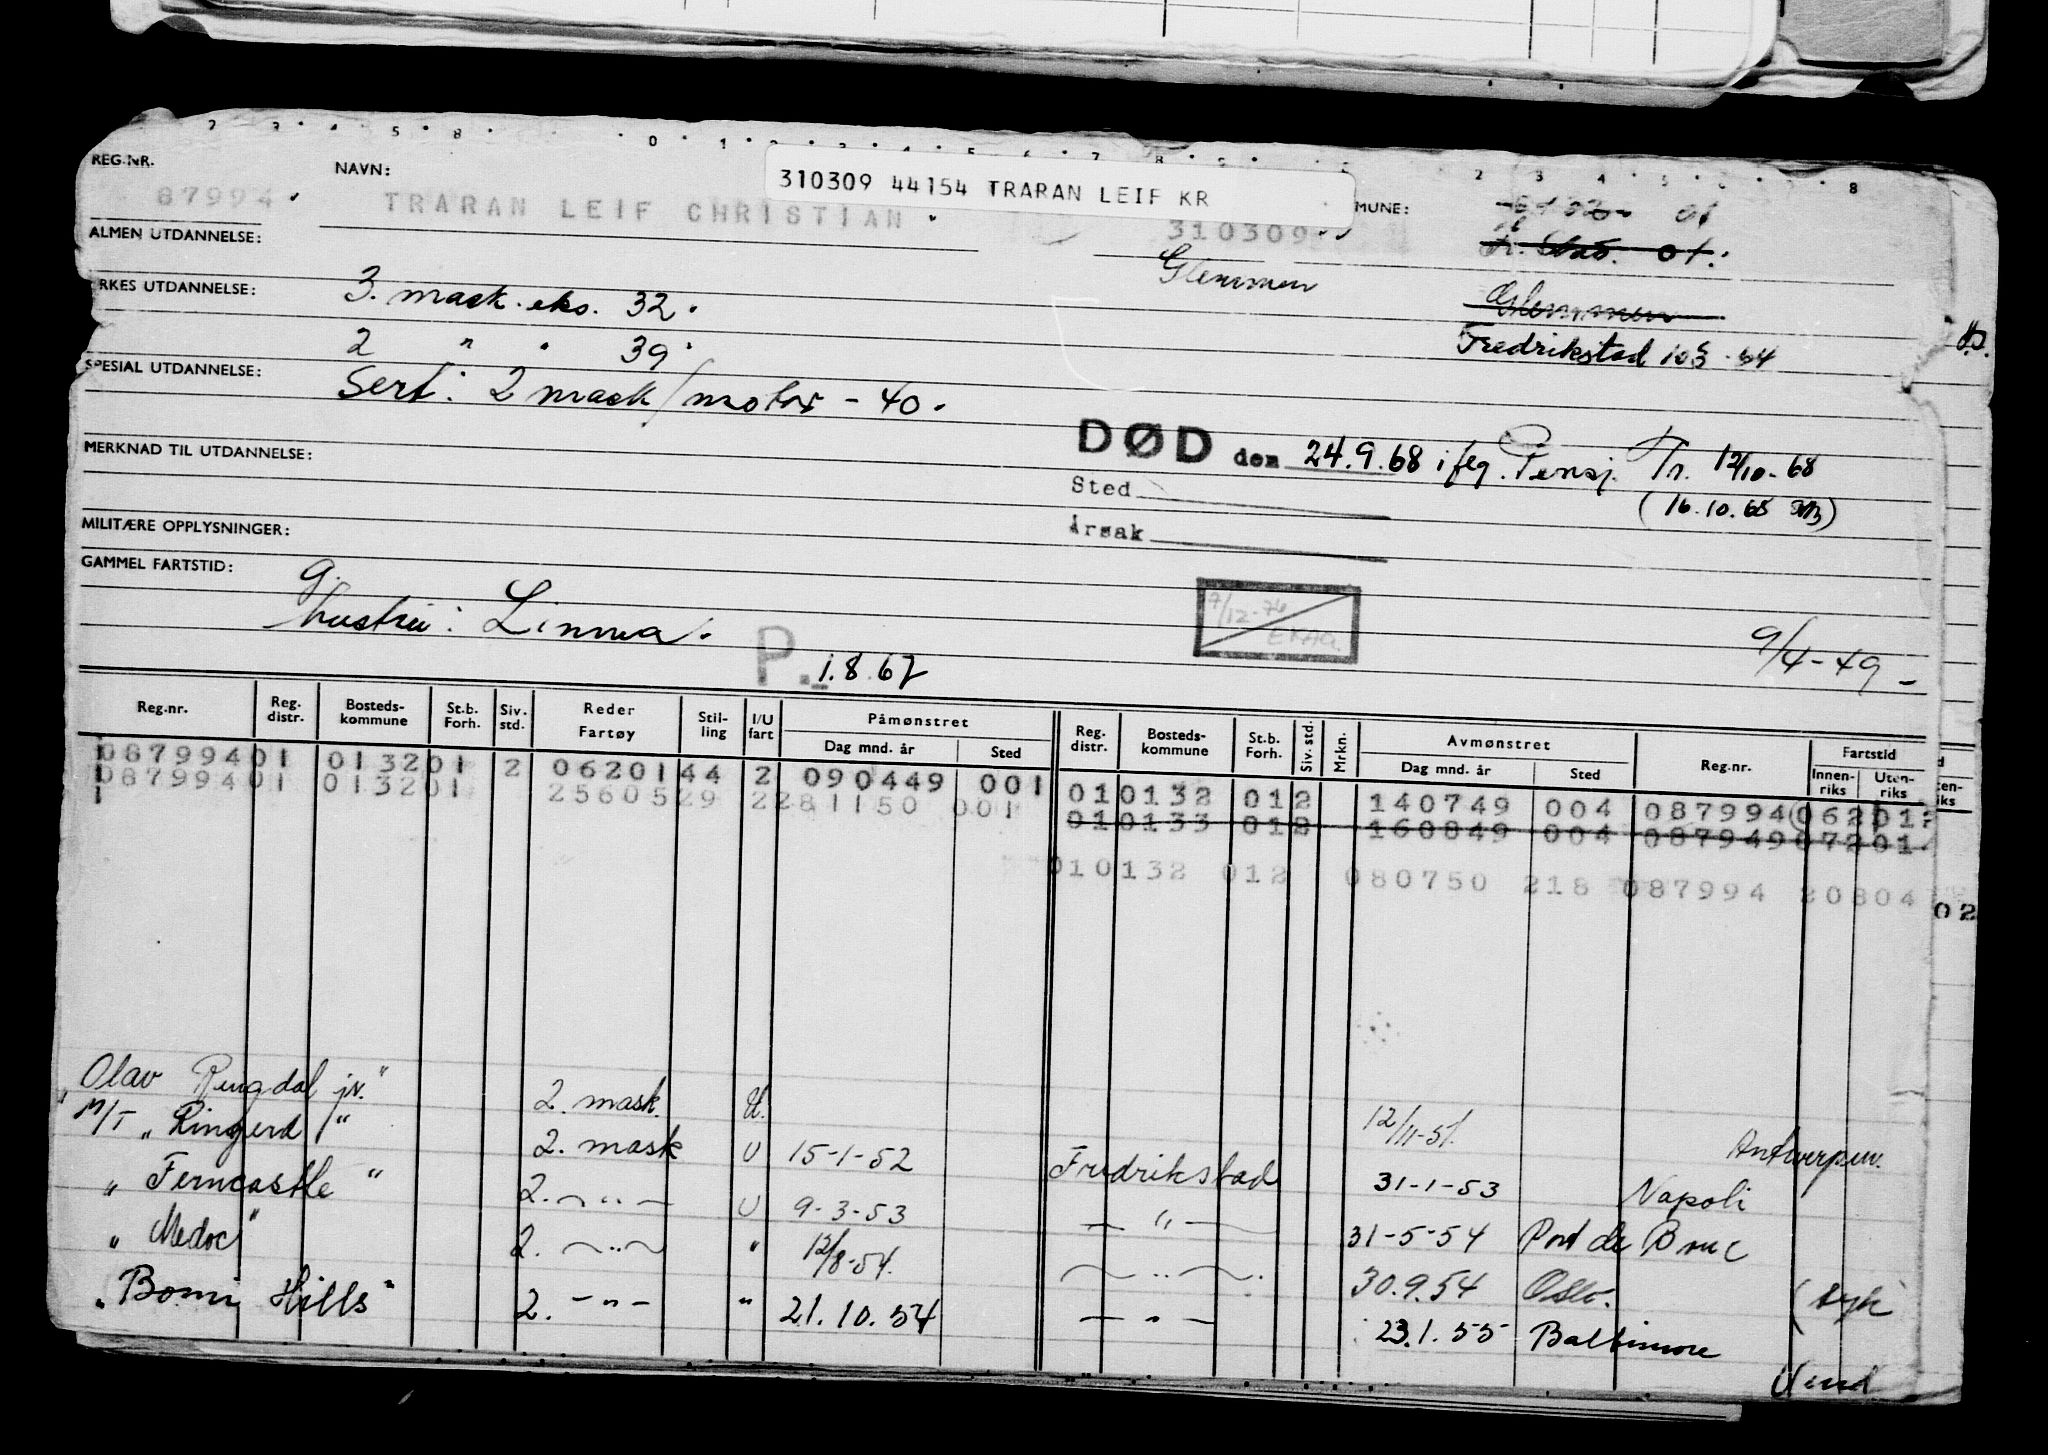 REG.NR. NAVN: 310309 44154 TRARAN LEIF KR MUNE:
87994. TRARAN LEIF CHRISTIAN. 310309 01
ALMEN UTDANNELSE: Glemmen Fr. Stad. 01.
RKES UTDANNELSE: 3. mask. eks. 32. Glemmen
2 " " 39. Fredrikstad
SPESIAL UTDANNELSE: Sert: 2 mask/motor - 40.
MERKNAD TIL UTDANNELSE: DØD den 24.9.68 i flg. Pensj. Tr. 12/10-68
Sted (16.10.68
MILITÆRE OPPLYSNINGER: Årsak
GAMMEL FARTSTID: g.
hustru: Linnea. 9/12-74
P. 1.8.67 9/4-49-
Reg.nr. Reg. distr. Bosteds-kommune St.b. Forh. Siv. std. Reder Fartøy Stil-ling I/U fart Påmønstret Dag mnd. år Sted Reg. distr. Bosteds-kommune St.b. Forh. Siv. std. Mrkn. Avmønstret Dag mnd. år Sted Reg.nr. Fartstid Innen-riks Uten-riks
087994 01 0132 01 2 0620144 2 090449 001 01 0132 01 2 140749 004 087994 062 012
087994 01 0132 01 2560529 2 281150 001 01 0133 01 2 160849 004 087949 072 01
1 01 0132 01 2 080750 218 087994 20804
02
"Olav Ringdal jr." 2. mask. U. 12/11-51. Antwerpen.
M/T "Ringerd" 2. mask U 15-1-52 Fredrikstad 31-1-53 Napoli
" Ferncastle " 2. — " — U 9-3-53 — " — 31-5-54 Port de Bouc
" Medoc" 2. — " — " 12/8-54. — " — 30.9.54 Oslo. (syk)
"Bomi Hills" 2. — " — " 21.10.54 — " — 23.1.55 Baltimore